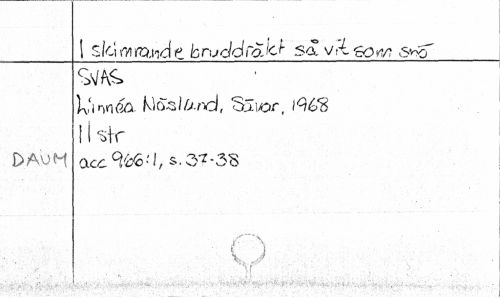 I skimrande bruddräkt så vit som snö
SVAS
Linnéa Näslund, Sävar, 1968
11 str
DAUM acc 966:1, s. 37-38